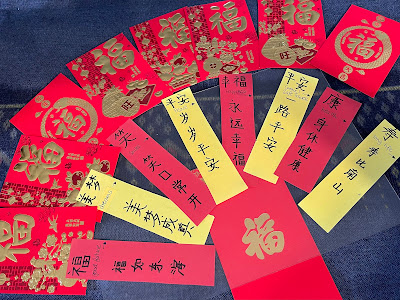 福
福
福
福
福
福
旺
福
旺
福
福
福
福
福如东海
美梦
美梦成真
笑
笑口常开
平安
岁岁平安
幸福
永远幸福
平安
一路平安
康
身体健康
寿
寿比南山
福